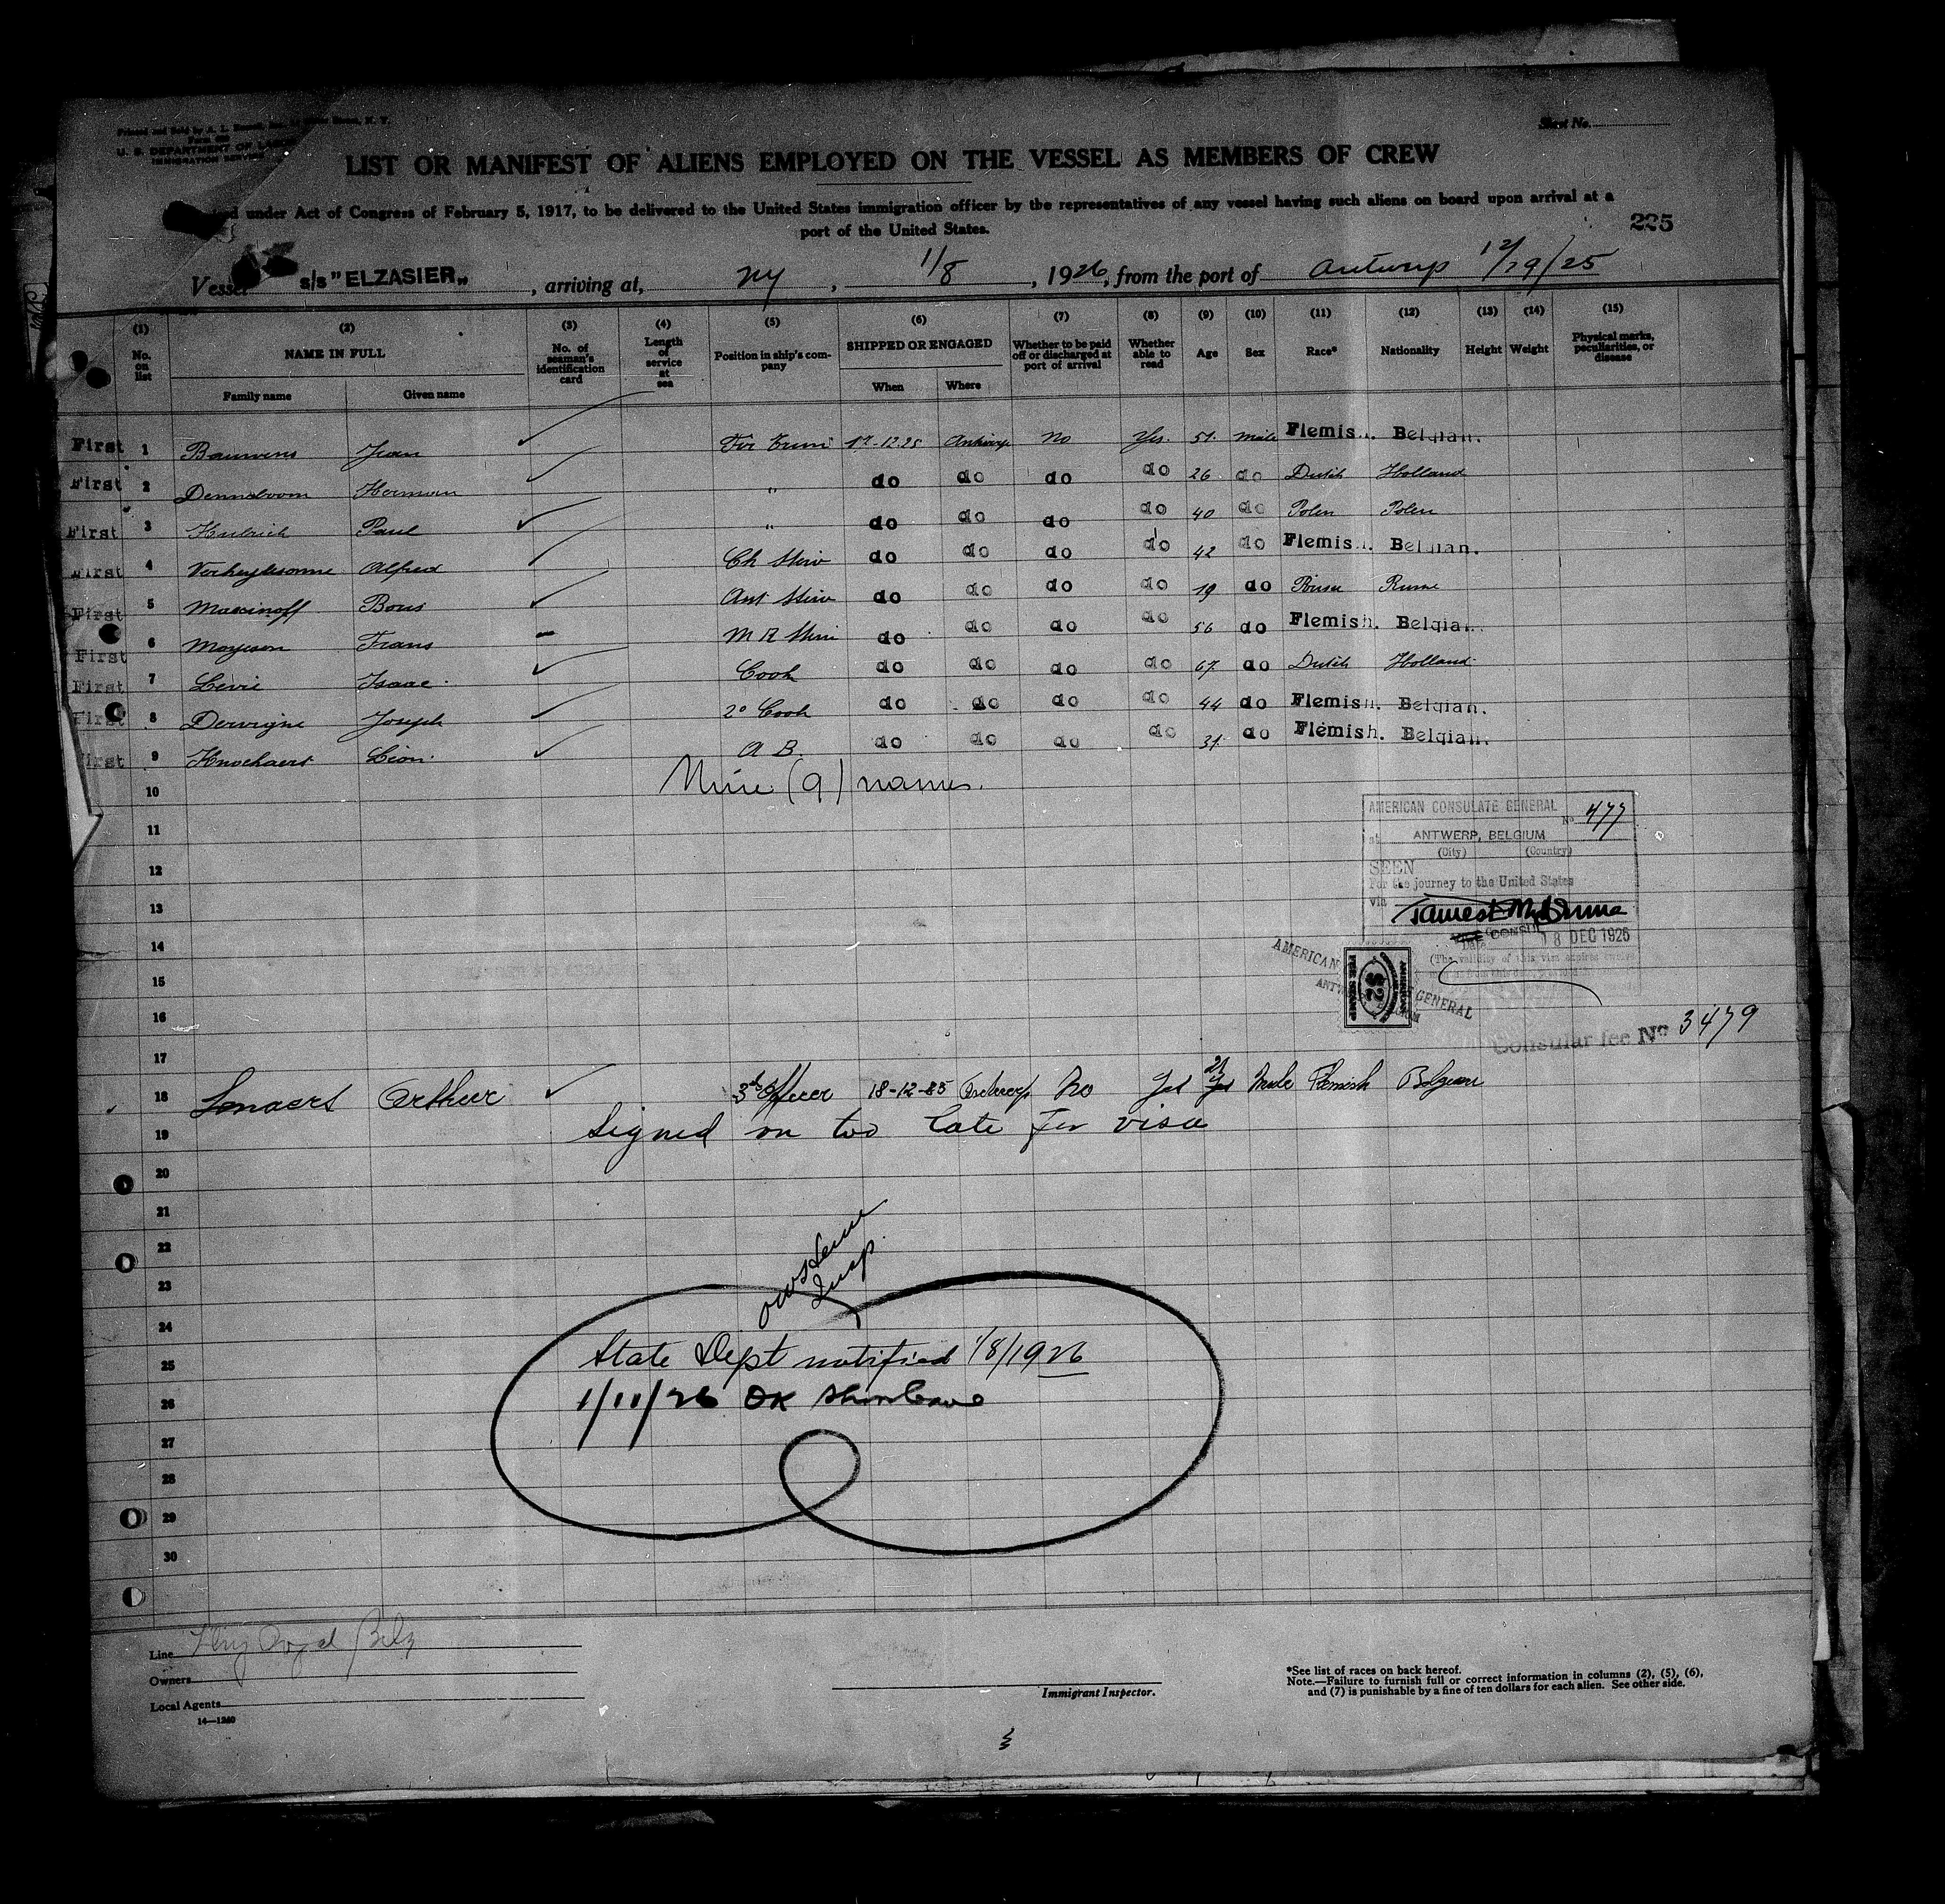 Sheet No.
Printed and Sold by
U. S. DEPARTMENT OF LABOR
IMMIGRATION SERVICE
LIST OR MANIFEST OF ALIENS EMPLOYED ON THE VESSEL AS MEMBERS OF CREW
under Act of Congress of February 5, 1917, to be delivered to the United States immigration officer by the representatives of any vessel having such aliens on board upon arrival at a
port of the United States.
225
Vessel s/s "ELZASIER„ , arriving at, NY , 1/8 , 1926, from the port of Antwerp 12/19/25
(1) (2) (3) (4) (5) (6) (7) (8) (9) (10) (11) (12) (13) (14) (15)
No. on list NAME IN FULL No. of seaman's identification card Length of service at sea Position in ship's company SHIPPED OR ENGAGED Whether to be paid off or discharged at port of arrival Whether able to read Age Sex Race* Nationality Height Weight Physical marks, peculiarities, or disease
Family name Given name When Where
First 1 Bauwens Jean 17-12.25 Antwerp No Yes. 51. male Flemish. Belgian.
First 2 Denneboom Herman " do do do do 26 do Dutch Holland
First 3 Paul " do do do do 40 do Polen Polen
First 4 Alfred Ch Stew do do do do 42 do Flemish. Belgian.
First 5 Boris do do do do 19 do
First 6 Frans do do do do 56 do Flemish. Belgian.
First 7 Levie Isaac. Cook do do do do 67. do Dutch Holland
First 8 Joseph 2° Cook do do do do 44 do Flemish. Belgian.
First 9 Knockaert Léon. A B. do do do do 31. do Flemish. Belgian.
10 Nine (9) names.
11
12
13
14
15
16
17
AMERICAN CONSULATE GENERAL
No 477
at ANTWERP, BELGIUM
(City) (Country)
SEEN
For the journey to the United States
via
VICE CONSUL
Date 18 DEC 1925
(The validity of this visa expires twelve
AMERICAN GENERAL
$2
Consular fee No 3479
18 Lenaers Arthur 3d Officer 18-12-25 Antwerp No Yes 21 Male Flemish Belgian
19 Signed on too late for visa
20
21
22
23
24
Insp.
25 State Dept notified 1/8/1926
26 1/11/26 OK
27
28
29
30
Line Royal Belg
Owners
Local Agents
14—1240
Immigrant Inspector.
*See list of races on back hereof.
Note.—Failure to furnish full or correct information in columns (2), (5), (6),
and (7) is punishable by a fine of ten dollars for each alien. See other side.